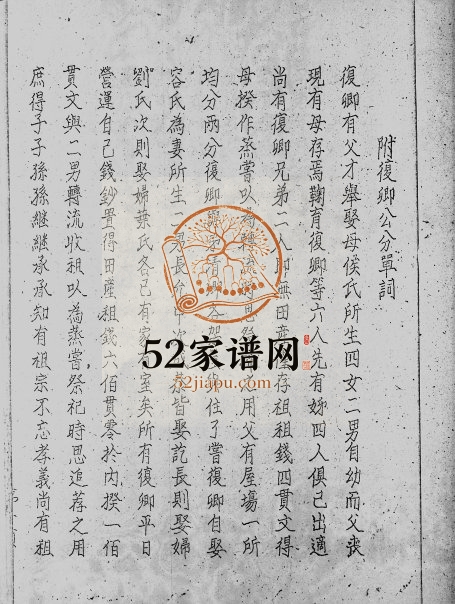 附復卿公分單詞
復卿有父才舉娶母侯氏所生四女二男自幼而父喪
現有母存焉鞠育復卿等六人先有姊四人俱已出適
尚有復卿兄弟二人即無田產僅存祖租錢四貫文得
母揆作蒸嘗以為轉流用父有屋場一所
均分兩分復卿住了嘗復卿自娶
容氏為妻所生二男長次皆娶訖長則娶婦
劉氏次則娶婦葉氏各已有家室矣所有復卿平日
營運自己錢鈔置得田產租錢六佰貫零於內揆一佰
貫文與二男轉流收租以為蒸嘗祭祀時思追荐之用
庶得子子孫孫継継承承知有祖宗不忘孝義尚有租
52家谱网
52jiapu.com